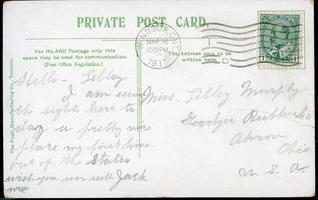 PRIVATE POST CARD.
For INLAND Postage only this
space may be used for communication.
(Post Office Regulation.)
The Address only to be
written here.
WINDSOR, ONT.
MAR 26
10 PM
191
Hello Lilly
I am seeing
the sights here to
day a pretty nice
place my first time
out of the States
wish you were with Jack
Miss. Lilley Murphy
Akron
Ohio
U.S.A.
The Pugh Manufacturing Co., Toronto.